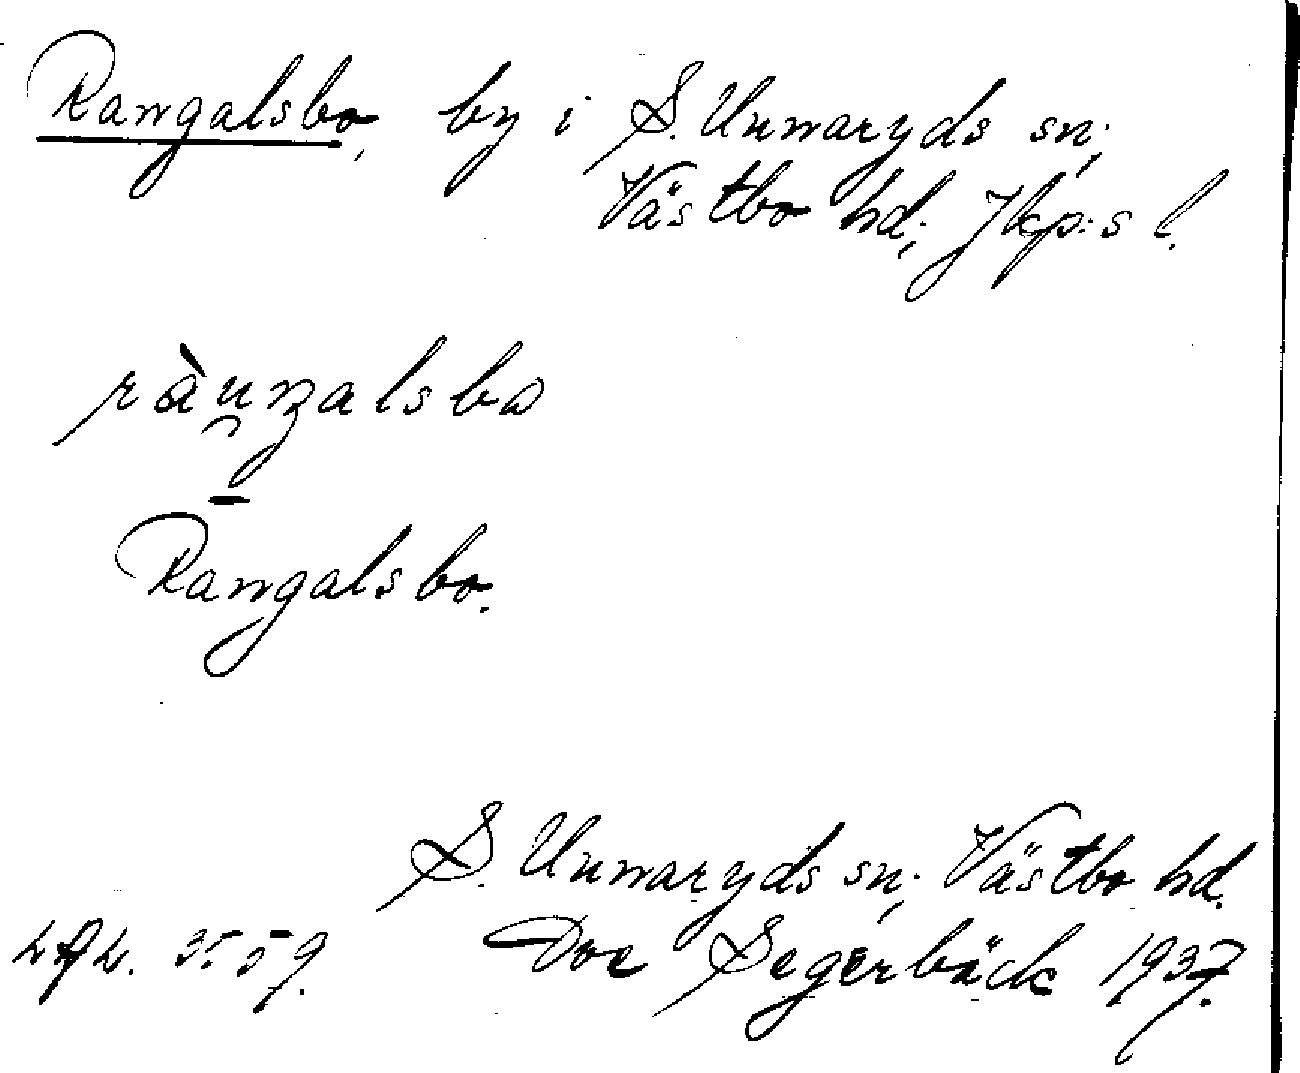 Rangalsbo, by i S. Unnaryds sn;
Västbo hd; Jkp:s l.
Rangalsbo.
S. Unnaryds sn; Västbo hd.
3559. Segerbäck 1937.